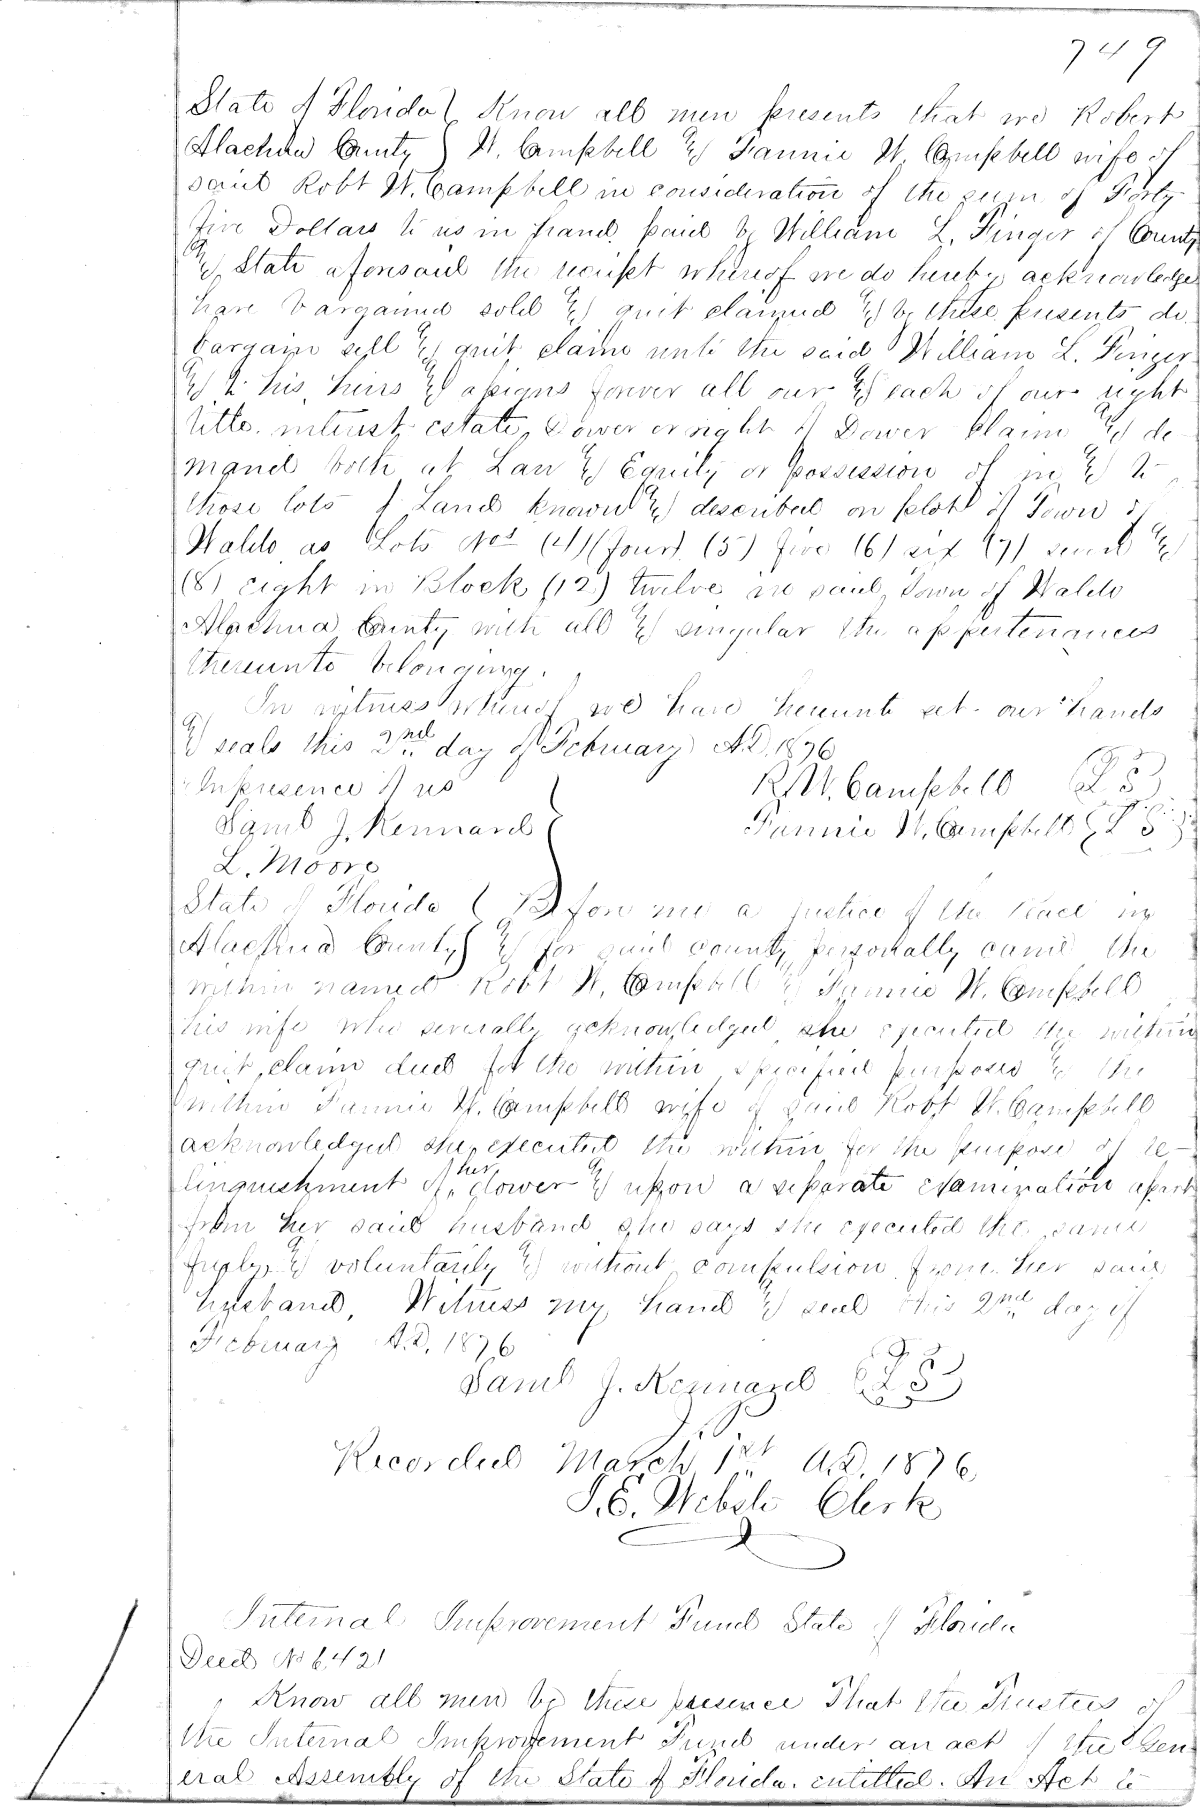 749
State of Florida } Know all men presents that we Robert
Alachua County } W. Campbell & Fannie W. Campbell wife of
said Robt W. Campbell in consideration of the sum of Forty
five Dollars to us in hand paid by William L. Finger of County
& State aforesaid the receipt whereof we do hereby acknowledge
have bargained sold & quit claimed & by these presents do
bargain sell & quit claim unto the said William L. Finger
& to his heirs & assigns forever all our & each of our right
title interest estate, Dower or right of Dower claim & de
mand both at Law & Equity or possession of in & to
those lots of Land known & described on plot of Town of
Waldo as Lots Nos (4) (four) (5) five (6) six (7) seven &
(8) eight in Block (12) twelve in said Town of Waldo
Alachua County with all & singular the appertenances
thereunto belonging.
In witness whereof we have hereunto set our hands
& seals this 2nd day of February A.D. 1876
In presence of us } R. W. Campbell (L S)
Saml J. Kennard } Fannie W. Campbell (L S)
L. Moore
State of Florida } Before me a Justice of the Peace in
Alachua County } & for said county personally came the
within named Robt W. Campbell & Fannie W. Campbell
his wife who severally acknowledged she executed the within
quit claim deed for the within specified purposes & the
within Fannie W. Campbell wife of said Robt W. Campbell
acknowledged she executed the within for the purpose of re-
linquishment of her dower & upon a separate examination apart
from her said husband she says she executed the same
freely & voluntarily & without compulsion from her said
husband. Witness my hand & seal this 2nd day of
February A.D. 1876
Saml J. Kennard (L S)
Recorded March 1st A.D. 1876
J. E. Webster Clerk
Internal Improvement Fund State of Florida
Deed No 6,421
Know all men by these presence That the Trustees of
the Internal Improvement Fund under an act of the Gen
eral Assembly of the State of Florida. entitled. An Act to